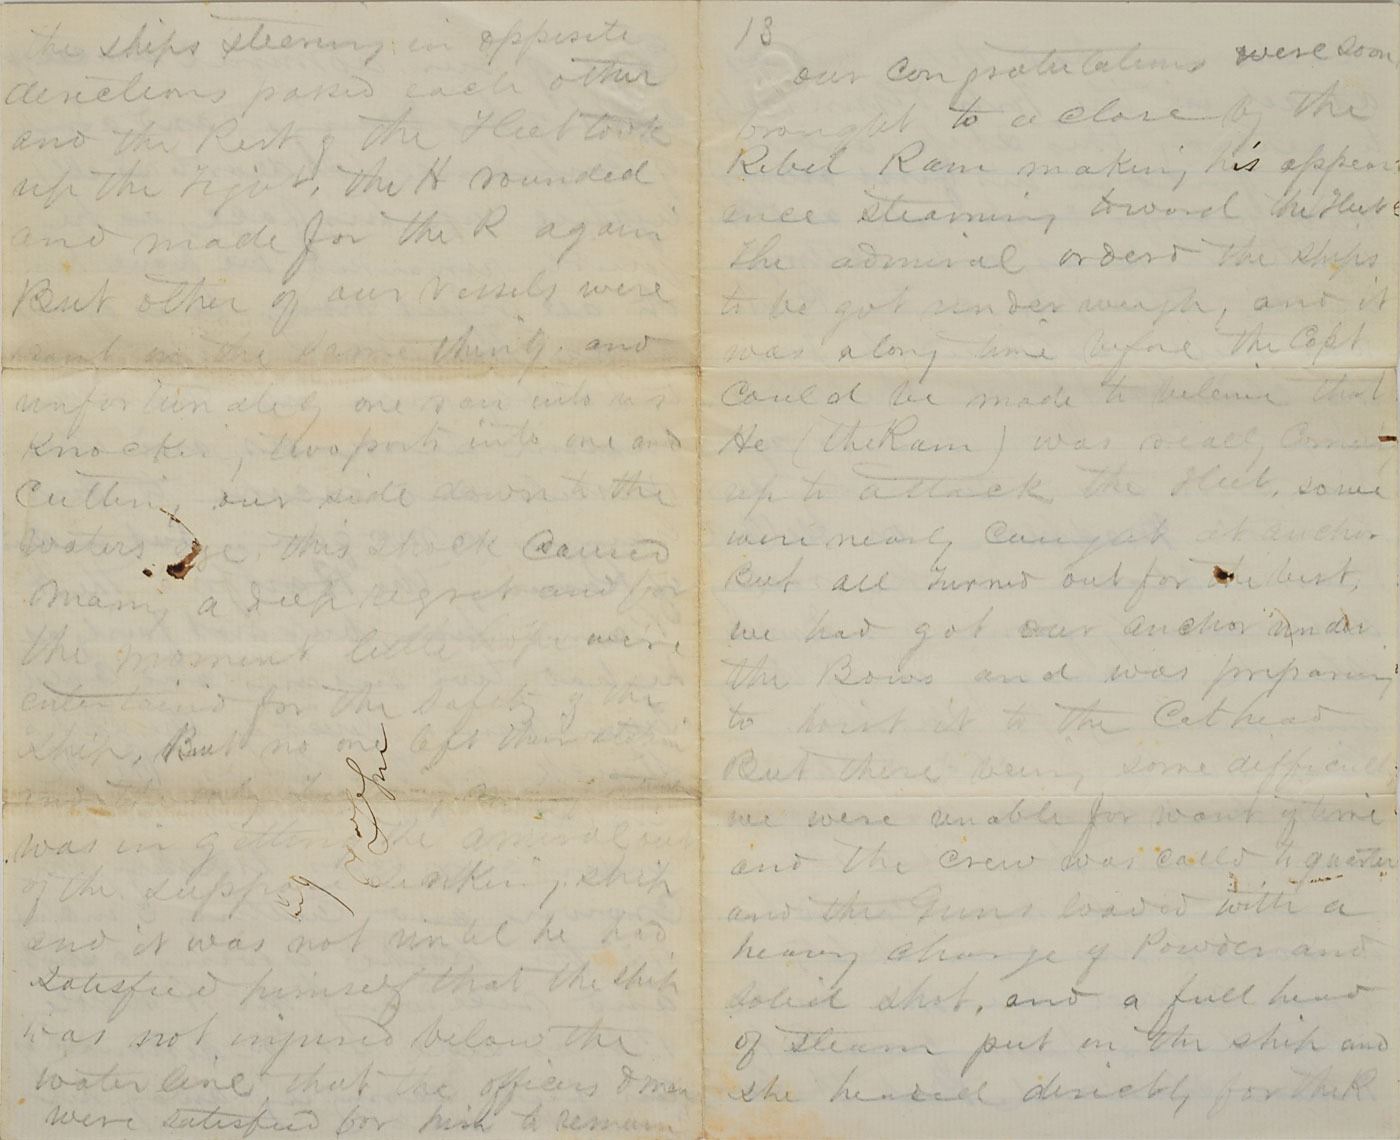 the ships steaming in opposite
directions passed each other
and the Rest of the Fleet took
up the Fight, the H rounded
and made for the R again
But other of our vessels were
in the same thing. and
unfortunately one ran into us
Knocking two ports into one and
Cutting our side down to the
waters this shock Caused
Many a deep regret and for
the moment little hope were
entertained for the Safety of the
ship, But no one left their station
and the only
was in getting the admiral out
of the sinking ship
and it was not until he had
Satisfied himself that the ship
was not injured below the
water line, that the officers & men
were satisfied for him to remain
13
our congratulations were soon
brought to a close by the
Rebel Ram making his appear
ance steaming toward the Fleet
The admiral orderd the ships
to be got under weigh, and it
was along time before the Capt
Could be made to beleive that
He (the Ram) was really Coming
up to attack the Fleet. some
were nearly Caught at anchor
But all turned out for the best,
we had got our anchor under
the Bows and was preparing
to hoist it to the Cathead
But there being some difficulty
we were unable for want of time
and the crew was calld to quarters
and the Guns loaded with a
heavy charge of Powder and
solid shot, and a full head
of steam put in the ship and
she headed directly for the R